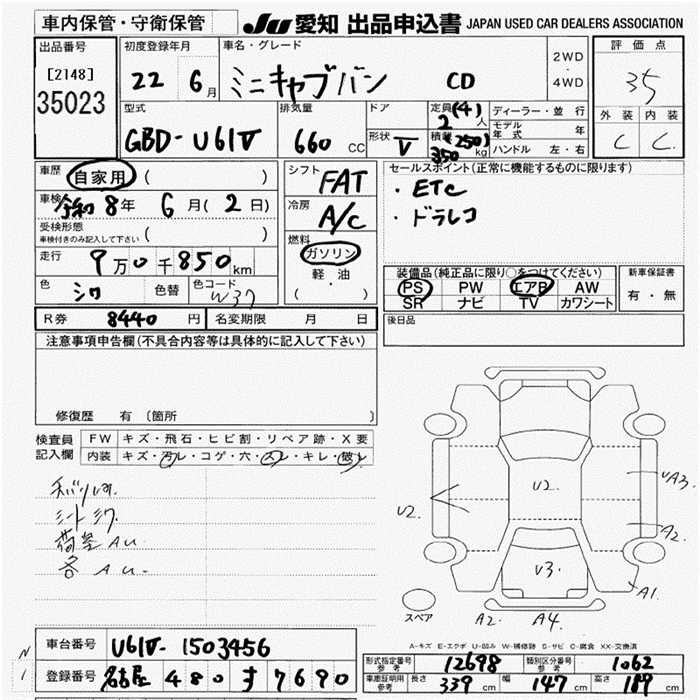 車内保管・守衛保管 JU 愛知 出品申込書 JAPAN USED CAR DEALERS ASSOCIATION
出品番号 初度登録年月 車名・グレード 評価点
[2148] 35023
22年 6月 ミニキャブバン CD 2WD・4WD 35
型式 排気量 ドア 定員(4) 2人 ディーラー・並行 外装 内装
GBD-U61V 660 CC 形状 V 積載(250) 350kg モデル年式 年 C C
ハンドル 左・右
車歴 自家用 ( ) シフト FAT セールスポイント(正常に機能するものに限ります)
車検 令和8年 6月(2日) 冷房 A/C ・ETC
受検形態 車検付きのみ記入して下さい ( ) ・ドラレコ
走行 9万0千850km 燃料 ガソリン
軽・油
( )
色 シロ 色替 色コード W37
装備品(純正品に限り○をつけてください) 新車保証書
PS PW エアB AW 有・無
SR ナビ TV カワシート
R券 8440円 名変期限 月 日 後日品
注意事項申告欄(不具合内容等は具体的に記入して下さい)
修復歴 有 〔箇所 〕
検査員記入欄 FW キズ・飛石・ヒビ割・リペア跡・X要
内装 キズ・汚レ・コゲ・穴・スレ・キレ・破レ
シート シワ
荷室 AU
各 AU
U2 U2 UA3
A2
U3 A1
スペア A2 A4
A-キズ E-エクボ U-凹み W-補修跡 S-サビ C-腐食 XX-交換済
車台番号 U61V-1503456
登録番号 名古屋 480 す 7690
形式指定番号 参考 12698 類別区分番号 参考 1062
車庫証明用 参考 長さ 339cm 幅 147cm 高さ 189cm